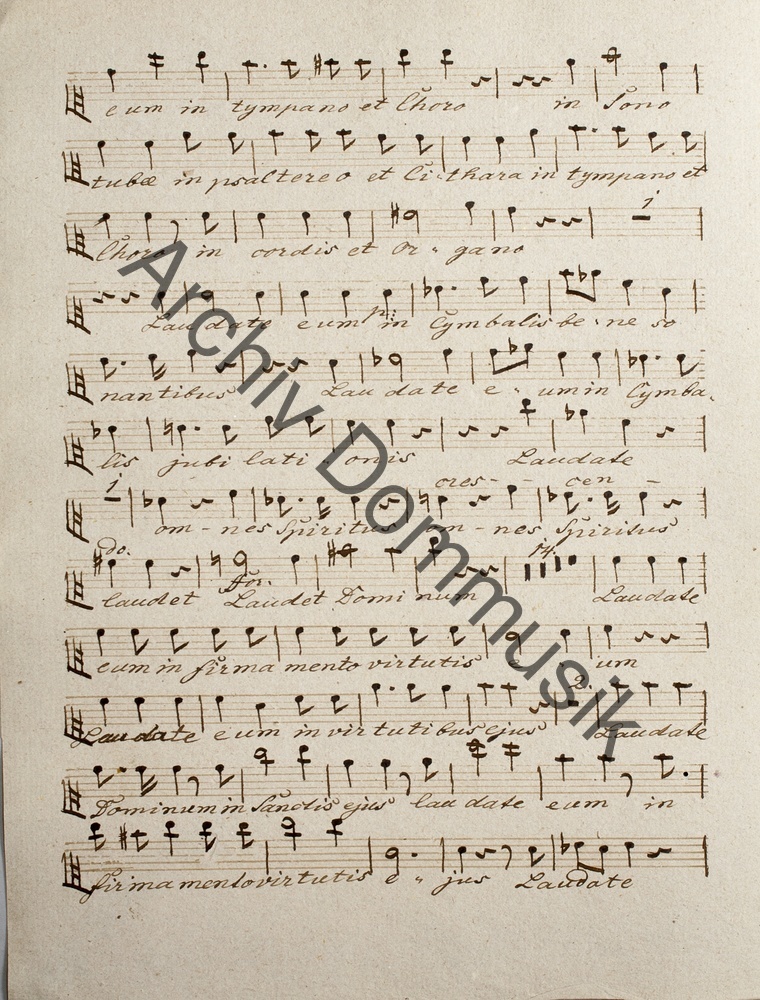 eum in tympano et Choro in Sono
tubæ in psaltereo et Ci-thara in tympano et
Choro in cordis et Or-gano
1
Laudate eum in Cymbalis be-ne so
p:
nantibus Laudate e-um in Cymba-
lis jubilati-onis Laudate
cres- - cen -
1
om-nes Spiritus om-nes Spiritus
do.
laudet Laudet Dominum Laudate
for.
14.
eum in firmamento virtutis e-ium
Laudate eum in virtutibus ejus Laudate
2.
Dominum in Sanctis ejus laudate eum in
firmamento virtutis e-jus Laudate
Archiv Dommusik